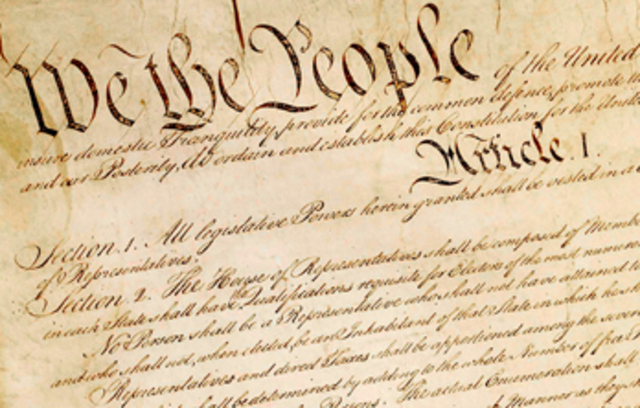 We the People of the United
insure domestic Tranquility, provide for the common defence, promote the
and our Posterity, do ordain and establish this Constitution for the United
Article. I.
Section. 1. All legislative Powers herein granted shall be vested in a
of Representatives.
Section. 2. The House of Representatives shall be composed of Memb
in each State shall have Qualifications requisite for Electors of the most numerou
No Person shall be a Representative who shall not have attained to
and who shall not, when elected, be an Inhabitant of that State in which he sh
Representatives and direct Taxes shall be apportioned among the seve
shall be determined by adding to the whole Number of free
Persons. The actual Enumeration shall
Manner as they